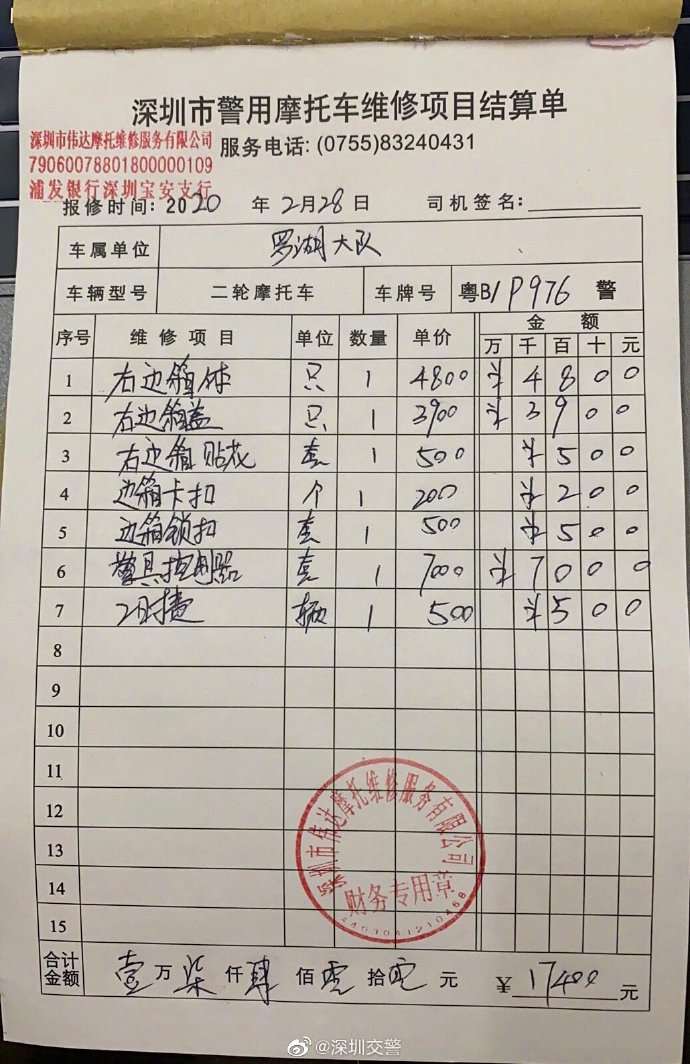 深圳市警用摩托车维修项目结算单
深圳市伟达摩托维修服务有限公司
服务电话: (0755)83240431
79060078801800000109
浦发银行深圳宝安支行
报修时间: 2020 年 2月28日 司机签名:
车属单位 罗湖大队
车辆型号 二轮摩托车 车牌号 粤B/P976 警
序号 维修项目 单位 数量 单价 金额
万 千 百 十 元
1 右边箱体 只 1 4800 ¥ 4 8 0 0
2 右边箱盖 只 1 3900 ¥ 3 9 0 0
3 右边箱贴花 套 1 500 ¥ 5 0 0
4 边箱卡扣 个 1 200 ¥ 2 0 0
5 边箱锁扣 套 1 500 ¥ 5 0 0
6 警具控制器 套 1 7000 ¥ 7 0 0 0
7 工时费 辆 1 500 ¥ 5 0 0
8
9
10
11
12
13
14
15
深圳市伟达摩托维修服务有限公司
财务专用章
合计金额 壹万柒仟肆佰零拾零元 ¥ 17400 元
@深圳交警